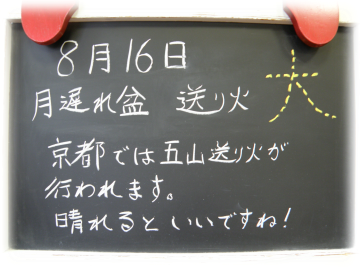 8月16日
月遅れ盆 送り火
大
京都では五山送り火が
行われます。
晴れるといいですね!